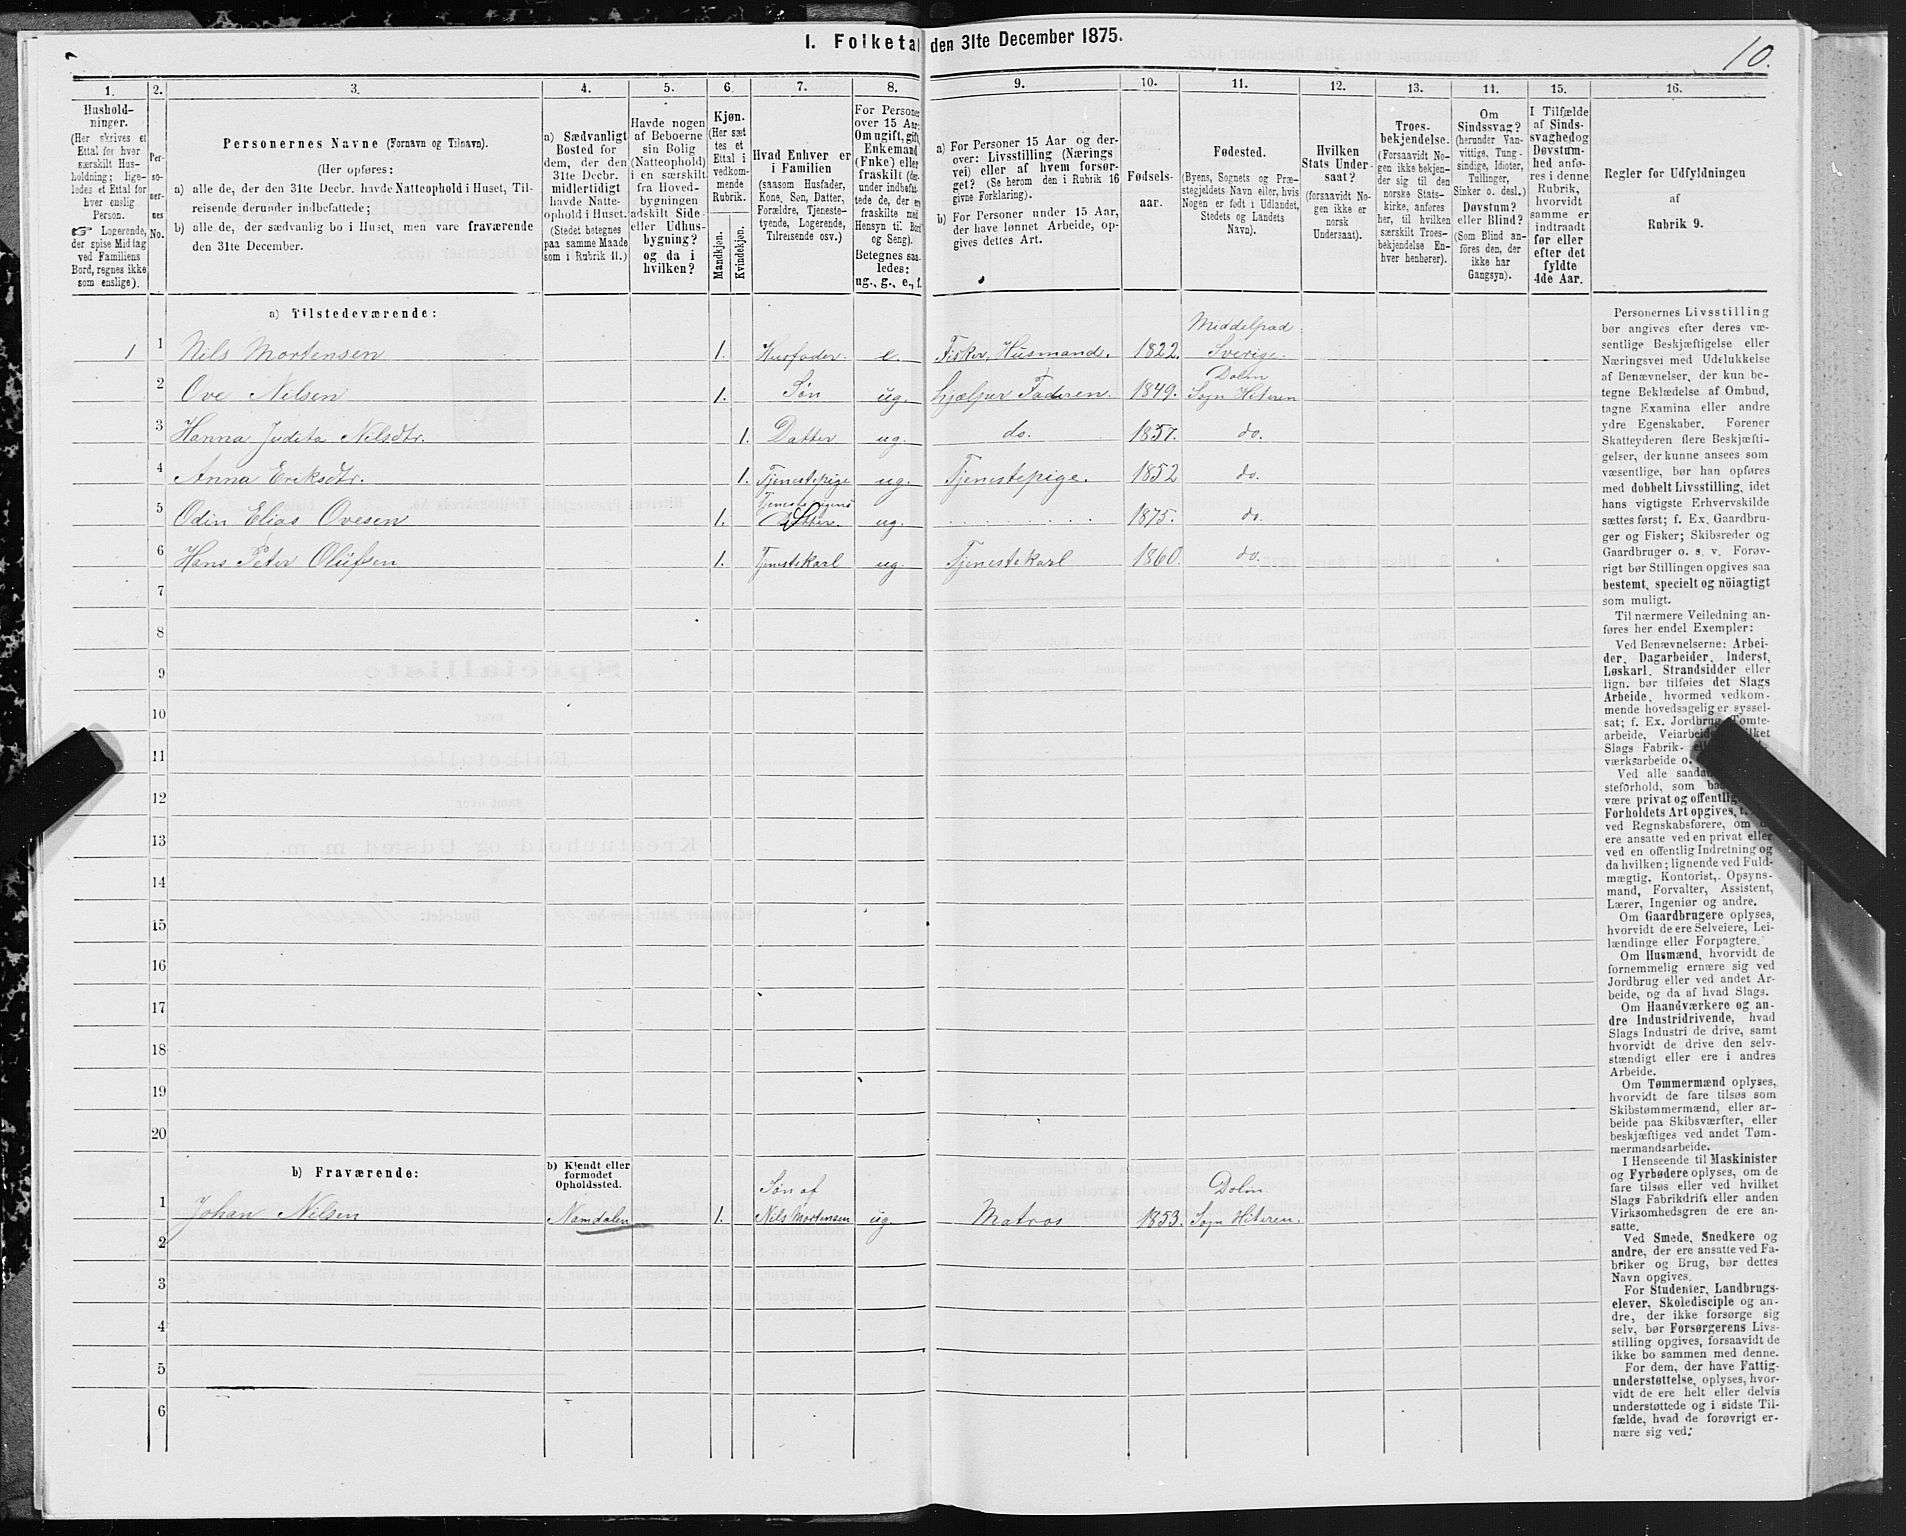 I. Folketal den 31te December 1875.
10.
1.
Hushold-
ninger.
(Her skrives et
Ettal for hver
særskilt Hus-
holdning; lige-
ledes et Ettal for
hver enslig
Person.
☞ Logerende,
der spise Middag
ved Familiens
Bord, regnes ikke
som enslige).
2.
Per-
so-
ner-
nes
No.
3.
Personernes Navne (Fornavn og Tilnavn).
(Her opføres:
a) alle de, der den 31te Decbr. havde Natteophold i Huset, Til-
reisende derunder indbefattede;
b) alle de, der sædvanlig bo i Huset, men vare fraværende
den 31te December.
4.
a) Sædvanligt
Bosted for
dem, der den
31te Decbr.
midlertidigt
havde Natte-
ophold i Huset.
(Stedet betegnes
paa samme Maade
som i Rubrik 11.)
5.
Havde nogen
af Beboerne
sin Bolig
(Natteophold)
i en særskilt
fra Hoved-
bygningen
adskilt Side-
eller Udhus-
bygning?
og da i
hvilken?
6.
Kjøn.
(Her sæt
tes et
Ettal i
vedkom-
mende
Rubrik.
Mandkjøn.
Kvindekjøn.
7.
Hvad Enhver er
i Familien
(saasom Husfader,
Kone, Søn, Datter,
Forældre, Tjeneste-
tyende, Logerende,
Tilreisende osv.)
8.
For Personer
over 15 Aar:
Om ugift, gift,
Enkemand
(Enke) eller
fraskilt (der-
under indbefat-
tede de, der ere
fraskilte med
Hensyn til Bord
og Seng).
Betegnes saa-
ledes:
ug., g., e., f.
9.
a) For Personer 15 Aar og der-
over: Livsstilling (Nærings
vei) eller af hvem forsør-
get? (Se herom den i Rubrik 16
givne Forklaring).
b) For Personer under 15 Aar,
der have lønnet Arbeide, op-
gives dettes Art.
10.
Fødsels-
aar.
11.
Fødested.
(Byens, Sognets og Præ-
stegjeldets Navn eller, hvis
Nogen er født i Udlandet,
Stedets og Landets
Navn).
12.
Hvilken
Stats Under-
saat?
(forsaavidt No-
gen ikke er
norsk
Undersaat).
13.
Troes-
bekjendelse.
(Forsaavidt No-
gen ikke bekjen-
der sig til den
norske Stats-
kirke, anføres
her, til hvilken
særskilt Troes-
bekjendelse En-
hver henhører).
14.
Om
Sindssvag?
(herunder Van-
vittige, Tung-
sindige, Idioter,
Tullinger,
Sinker o. desl.)
Døvstum?
eller Blind?
(Som Blind an-
føres den, der
ikke har
Gangsyn).
15.
I Tilfælde
af Sinds-
svaghed og
Døvstum-
hed anfø-
res i denne
Rubrik,
hvorvidt
samme er
indtraadt
før eller
efter det
fyldte
4de Aar.
16.
Regler for Udfyldningen
af
Rubrik 9.
a) Tilstedeværende:
Middelpad
1 1 Nils Mortensen 1. Husfader. e. Fisker, Husmand. 1822. Sverige.
Dolm
2 Ove Nilsen 1. Søn ug. hjælper Faderen. 1849. Sogn Hiteren
3 Hanna Judita Nilsdtr. 1. Datter ug. do. 1857. do.
4 Anna Eriksdtr. 1. Tjenestepige ug. Tjenestepige. 1852 do.
Tjenestepigens
5 Odin Elias Ovesen 1. ug. 1875. do.
6 Hans Peter Olufsen 1. Tjenestekarl ug. Tjenestekarl 1860. do.
7
8
9
10
11
12
13
14
15
16
17
18
19
20
b) Fraværende:
b) Kjendt eller
formodet
Opholdssted.
Søn af Dolm
1 Johan Nilsen Namdalen 1. Nils Mortensen ug. Matros 1853. Sogn Hiteren.
2
3
4
5
6
Personernes Livsstilling
bør angives efter deres væ-
sentlige Beskjæftigelse eller
Næringsvei med Udelukkelse
af Benævnelser, der kun be-
tegne Beklædelse af Ombud,
tagne Examina eller andre
ydre Egenskaber. Forener
Skatteyderen flere Beskjæfti-
gelser, der kunne ansees som
væsentlige, bør han opføres
med dobbelt Livsstilling, idet
hans vigtigste Erhvervskilde
sættes først; f. Ex. Gaardbru-
ger og Fisker; Skibsreder og
Gaardbruger o. s. v. Forøv-
rigt bør Stillingen opgives saa
bestemt, specielt og nöiagtigt
som muligt.
Til nærmere Veiledning an-
føres her endel Exempler:
Ved Benævnelserne: Arbei-
der, Dagarbeider, Inderst,
Løskarl, Strandsidder eller
lign. bør tilføies det Slags
Arbeide, hvormed vedkom-
mende hovedsagelig er syssel-
sat; f. Ex. Jordbrug, Tomte-
arbeide,
Slags Fabrik-
værksarbeide o.
Ved alle
steforhold, som
være privat og offentlig
Forholdets Art opgives,
ved Regnskabsførere, om
ere ansatte ved en privat eller
ved en offentlig Indretning og
da hvilken; lignende ved Fuld-
mægtig, Kontorist, Opsyns-
mand, Forvalter, Assistent,
Lærer, Ingeniør og andre.
Om Gaardbrugere oplyses,
hvorvidt de ere Selveiere, Lei-
lændinge eller Forpagtere.
Om Husmænd, hvorvidt de
fornemmelig ernære sig ved
Jordbrug eller ved andet Ar-
beide, og da af hvad Slags.
Om Haandværkere og an-
dre Industridrivende, hvad
Slags Industri de drive, samt
hvorvidt de drive den selv-
stændigt eller ere i andres
Arbeide.
Om Tømmermænd oplyses,
hvorvidt de fare tilsøs som
Skibstømmermænd, eller ar-
beide paa Skibsværfter, eller
beskjæftiges ved andet Tøm-
mermandsarbeide.
I Henseende til Maskinister
og Fyrbødere oplyses, om de
fare tilsøs eller ved hvilket
Slags Fabrikdrift eller anden
Virksomhedsgren de ere an-
satte.
Ved Smede, Snedkere og
andre, der ere ansatte ved Fa-
briker og Brug, bør dettes
Navn opgives.
For Studenter, Landbrugs-
elever, Skoledisciple og an-
dre, der ikke forsørge sig
selv, bør Forsørgerens Livs-
stilling opgives, forsaavidt de
ikke bo sammen med denne.
For dem, der have Fattig-
understøttelse, oplyses, hvor-
vidt de ere helt eller delvis
understøttede og i sidste Til-
fælde, hvad de forøvrigt er-
nære sig ved.